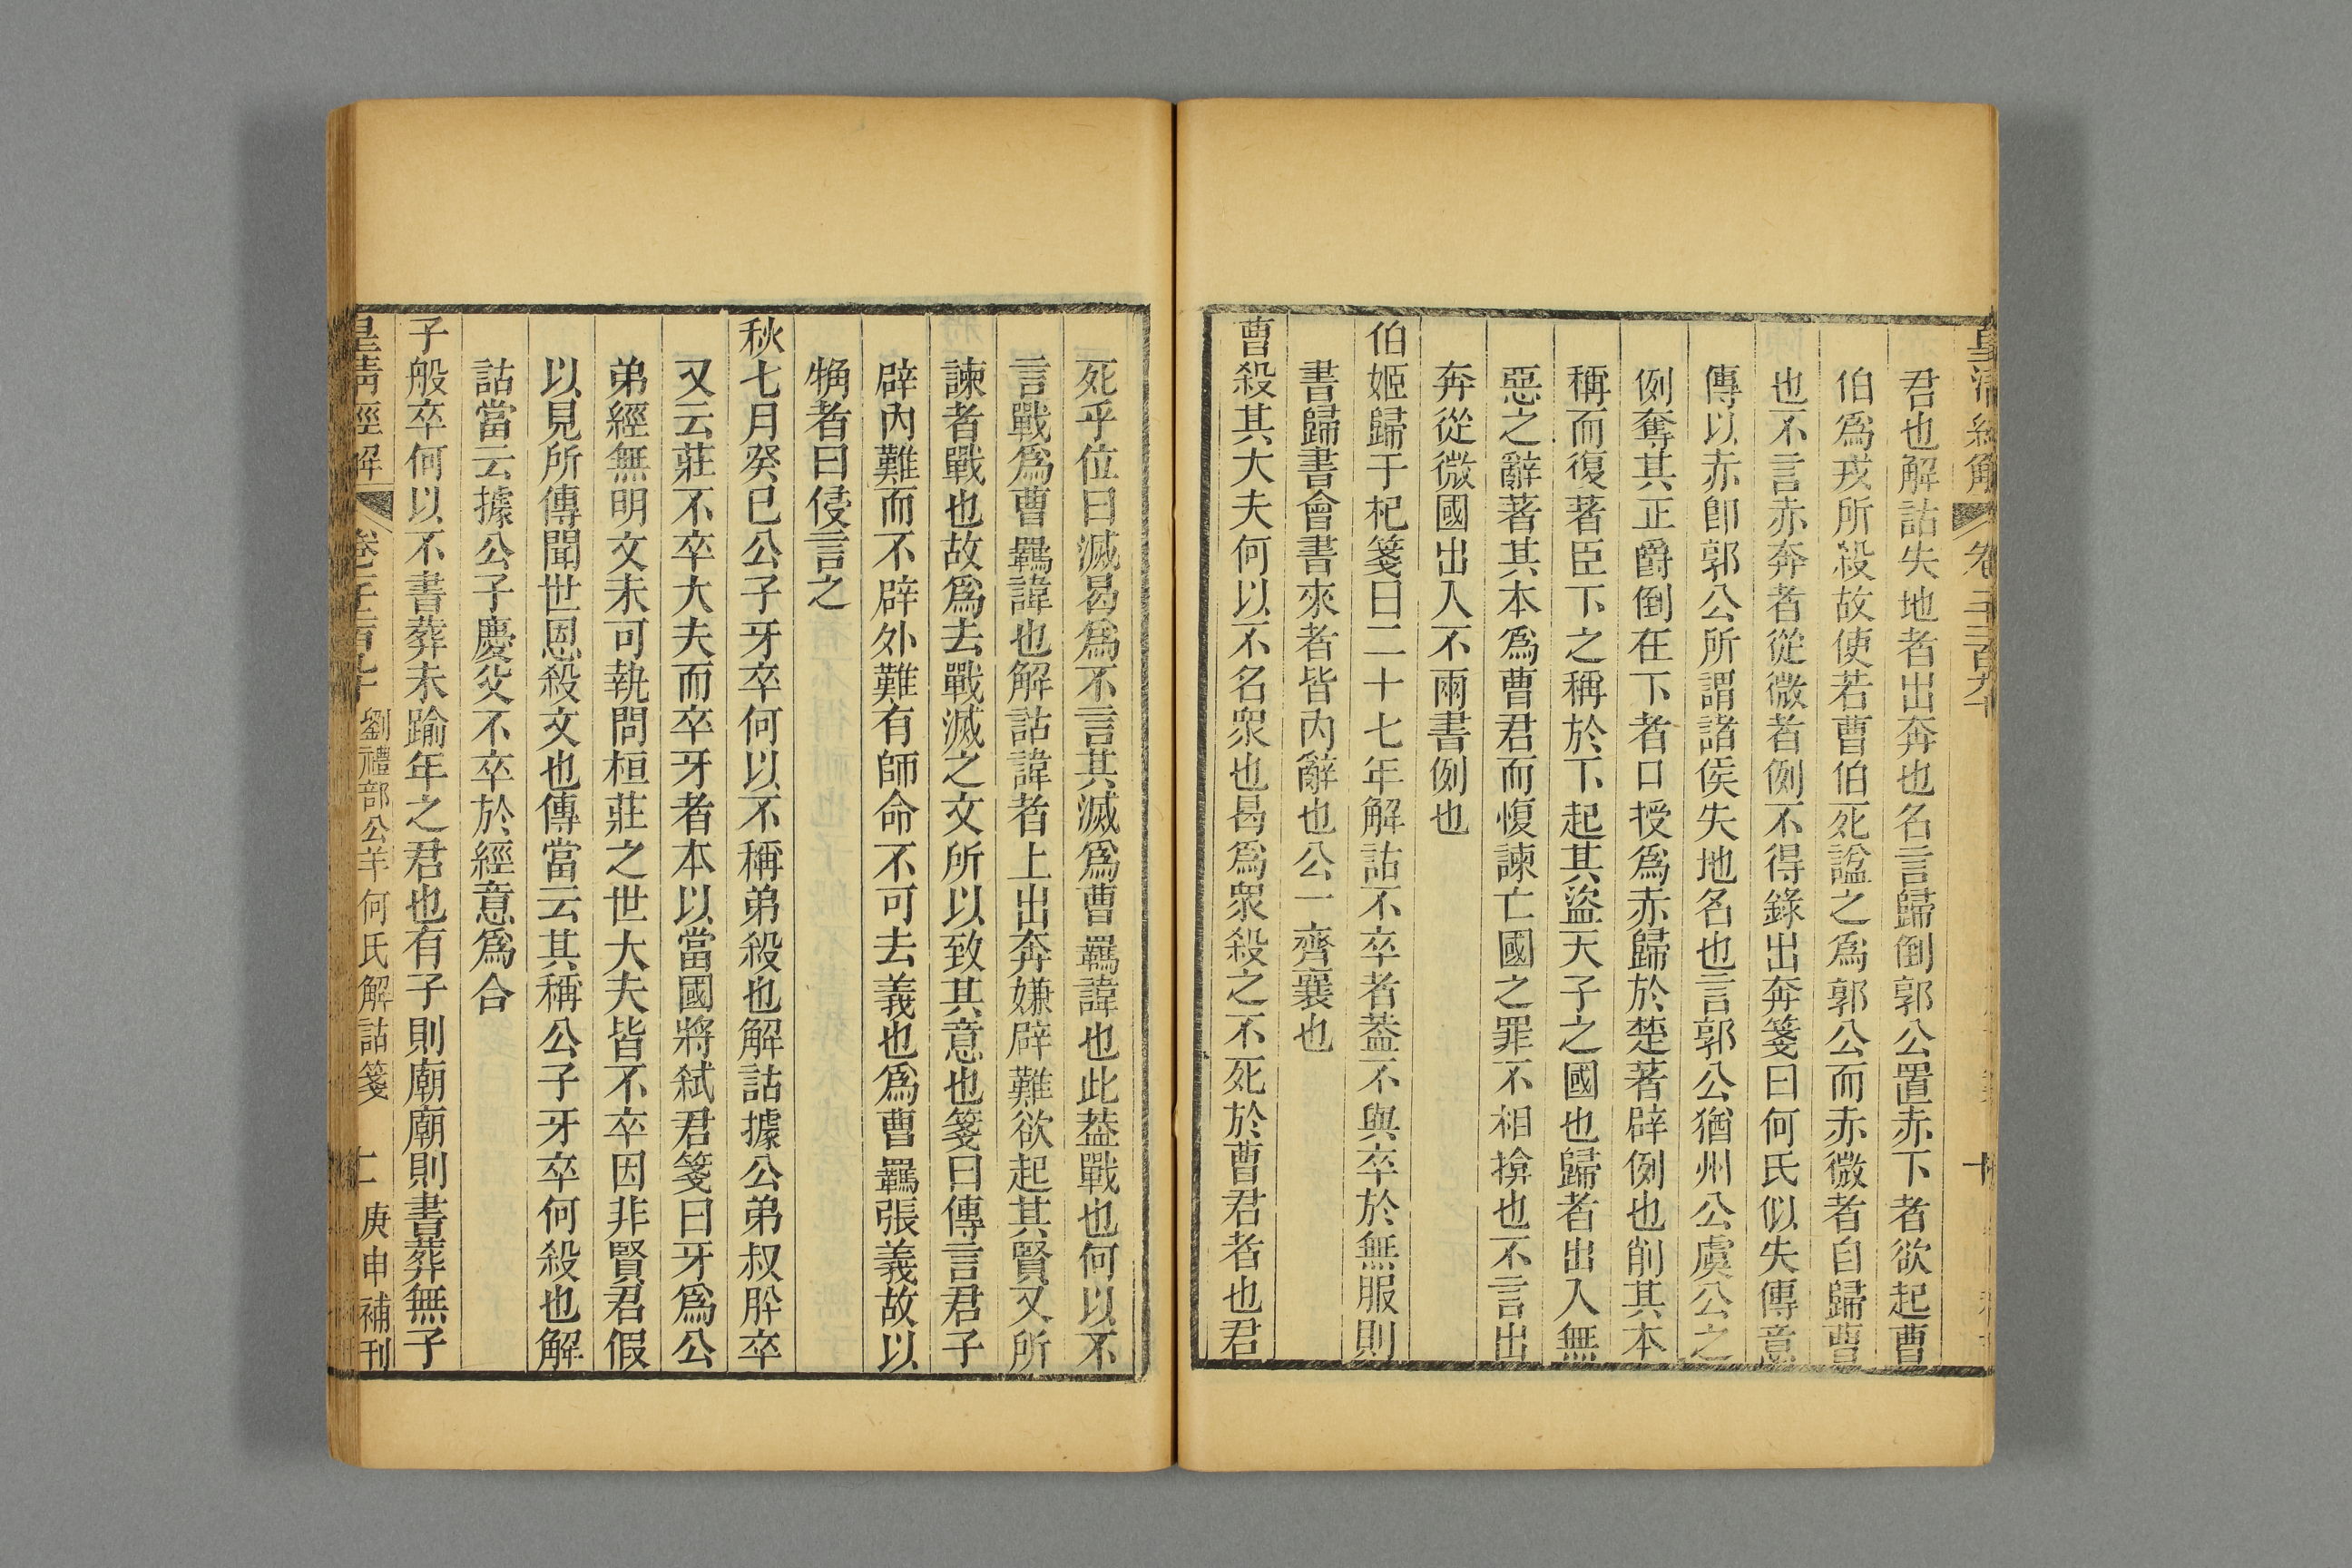 君也解詁失地者出奔也名言歸倒郭公置赤下者欲起曹
伯爲戎所殺故使若曹伯死諡之爲郭公而赤微者自歸曹
也不言赤奔者從微者例不得錄出奔箋曰何氏似失傳意
傳以赤卽郭公所謂諸侯失地名也言郭公猶州公虞公之
例奪其正爵倒在下者口授爲赤歸於楚著辟例也削其本
稱而復著臣下之稱於下起其盜天子之國也歸者出入無
惡之辭著其本爲曹君而愎諫亡國之罪不相揜也不言出
奔從微國出入不兩書例也
伯姬歸于杞箋曰二十七年解詁不卒者葢不與卒於無服則
書歸書會書來者皆內辭也公一齊襄也
曹殺其大夫何以不名衆也曷爲衆殺之不死於曹君者也君
死乎位曰滅曷爲不言其滅爲曹羈諱也此葢戰也何以不
言戰爲曹羈諱也解詁諱者上出奔嫌辟難欲起其賢又所
諫者戰也故爲去戰滅之文所以致其意也箋曰傳言君子
辟內難而不辟外難有師命不可去義也爲曹羈張義故以
觕者曰侵言之
秋七月癸巳公子牙卒何以不稱弟殺也解詁據公弟叔肸卒
又云莊不卒大夫而卒牙者本以當國將弒君箋曰牙爲公
弟經無明文未可執問桓莊之世大夫皆不卒因非賢君假
以見所傳聞世恩殺文也傳當云其稱公子牙卒何殺也解
詁當云據公子慶父不卒於經意爲合
子般卒何以不書葬未踰年之君也有子則廟廟則書葬無子
皇清經解 劉禮部公羊何氏解詁箋 庚申補刊